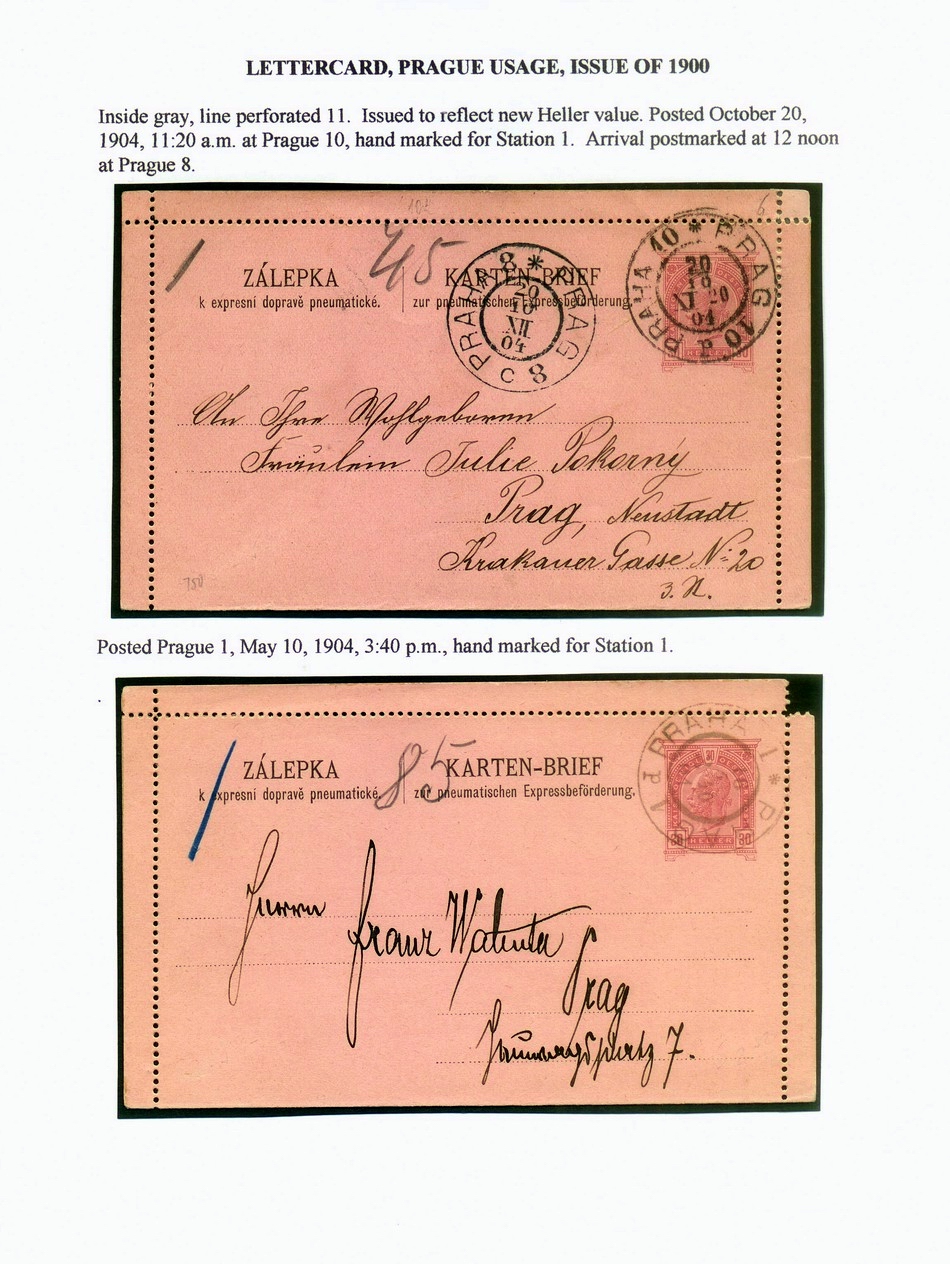 LETTERCARD, PRAGUE USAGE, ISSUE OF 1900
Inside gray, line perforated 11. Issued to reflect new Heller value. Posted October 20,
1904, 11:20 a.m. at Prague 10, hand marked for Station 1. Arrival postmarked at 12 noon
at Prague 8.
6
1
45
ZÁLEPKA
k expresní dopravě pneumatické.
KARTEN-BRIEF
zur pneumatischen Expressbeförderung.
PRAHA 8 * PRAG 8 c
20
10
XII
04
PRAHA 10 * PRAG 10 p
20
10
XI 20
04
HELLER
An Ihre Wohlgeboren
Fräulein Julie Pokorný
Prag, Neustadt
Krakauer Gasse No 20
750
Posted Prague 1, May 10, 1904, 3:40 p.m., hand marked for Station 1.
1
85
ZÁLEPKA
k expresní dopravě pneumatické.
KARTEN-BRIEF
zur pneumatischen Expressbeförderung.
1 d PRAHA 1 * P
30
30 HELLER 30
Herrn
Franz
Prag
7.